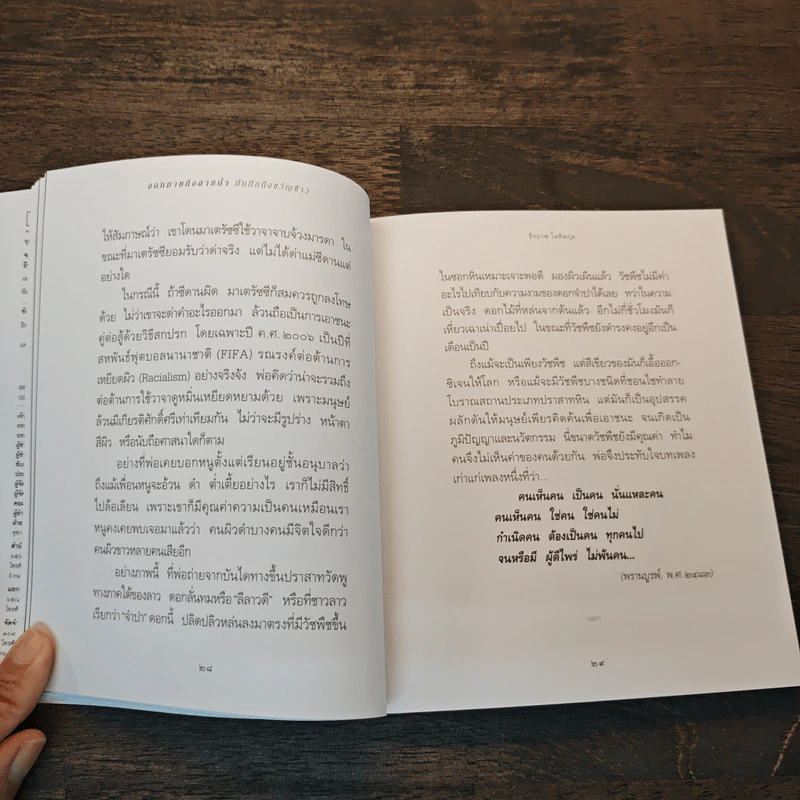 จดหมายถึงสายน้ำ บันทึกถึงขวัญข้าว
ให้สัมภาษณ์ว่า เขาโดนมาเตรัซซีใช้วาจาจาบจ้วงมารดา ใน
ขณะที่มาเตรัซซียอมรับว่าด่าจริง แต่ไม่ได้ด่าแม่ซีดานแต่
อย่างใด
ในกรณีนี้ ถ้าซีดานผิด มาเตรัซซีก็สมควรถูกลงโทษ
ด้วย ไม่ว่าเขาจะด่าคำอะไรออกมา ล้วนถือเป็นการเอาชนะ
คู่ต่อสู้ด้วยวิธีสกปรก โดยเฉพาะปี ค.ศ.๒๐๐๖ เป็นปีที่
สหพันธ์ฟุตบอลนานาชาติ (FIFA) รณรงค์ต่อต้านการ
เหยียดผิว (Racialism) อย่างจริงจัง พ่อคิดว่าน่าจะรวมถึง
ต่อต้านการใช้วาจาดูหมิ่นเหยียดหยามด้วย เพราะมนุษย์
ล้วนมีเกียรติศักดิ์ศรีเท่าเทียมกัน ไม่ว่าจะมีรูปร่าง หน้าตา
สีผิว หรือนับถือศาสนาใดก็ตาม
อย่างที่พ่อเคยบอกหนูตั้งแต่เรียนอยู่ชั้นอนุบาลว่า
ถึงแม้เพื่อนหนูจะอ้วน ดำ ต่ำเตี้ยอย่างไร เราก็ไม่มีสิทธิ์
ไปล้อเลียน เพราะเขาก็มีคุณค่าความเป็นคนเหมือนเรา
หนูคงเคยพบเจอมาแล้วว่า คนผิวดำบางคนมีจิตใจดีกว่า
คนผิวขาวหลายคนเสียอีก
อย่างภาพนี้ ที่พ่อถ่ายจากบันไดทางขึ้นปราสาทวัดพู
ทางภาคใต้ของลาว ดอกลั่นทมหรือ “ลีลาวดี” หรือที่ชาวลาว
เรียกว่า “จำปา” ดอกนี้ ปลิดปลิวหล่นลงมาตรงที่มีวัชพืชขึ้น
๒๘
ธีรภาพ โลหิตกุล
ในซอกหินเหมาะเจาะพอดี มองผิวเผินแล้ว วัชพืชไม่มีค่า
อะไรไปเทียบกับความงามของดอกจำปาได้เลย ทว่าในความ
เป็นจริง ดอกไม้ที่หล่นจากต้นแล้ว อีกไม่กี่ชั่วโมงมันก็
เหี่ยวเฉาเน่าเปื่อยไป ในขณะที่วัชพืชยังดำรงคงอยู่อีกเป็น
เดือนเป็นปี
ถึงแม้จะเป็นเพียงวัชพืช แต่สีเขียวของมันก็เอื้อออก-
ซิเจนให้โลก หรือแม้จะมีวัชพืชบางชนิดที่ชอนไชทำลาย
โบราณสถานประเภทปราสาทหิน แต่มันก็เป็นอุปสรรค
ผลักดันให้มนุษย์เพียรคิดค้นเพื่อเอาชนะ จนเกิดเป็น
ภูมิปัญญาและนวัตกรรม นี่ขนาดวัชพืชยังมีคุณค่า ทำไม
คนจึงไม่เห็นค่าของคนด้วยกัน พ่อจึงประทับใจบทเพลง
เก่าแก่เพลงหนึ่งที่ว่า...
คนเห็นคน เป็นคน นั่นแหละคน
คนเห็นคน ใช่คน ใช่คนไม่
กำเนิดคน ต้องเป็นคน ทุกคนไป
จนหรือมี ผู้ดีไพร่ ไม่พ้นคน...
(พรานบูรพ์, พ.ศ.๒๔๘๓)
๒๙